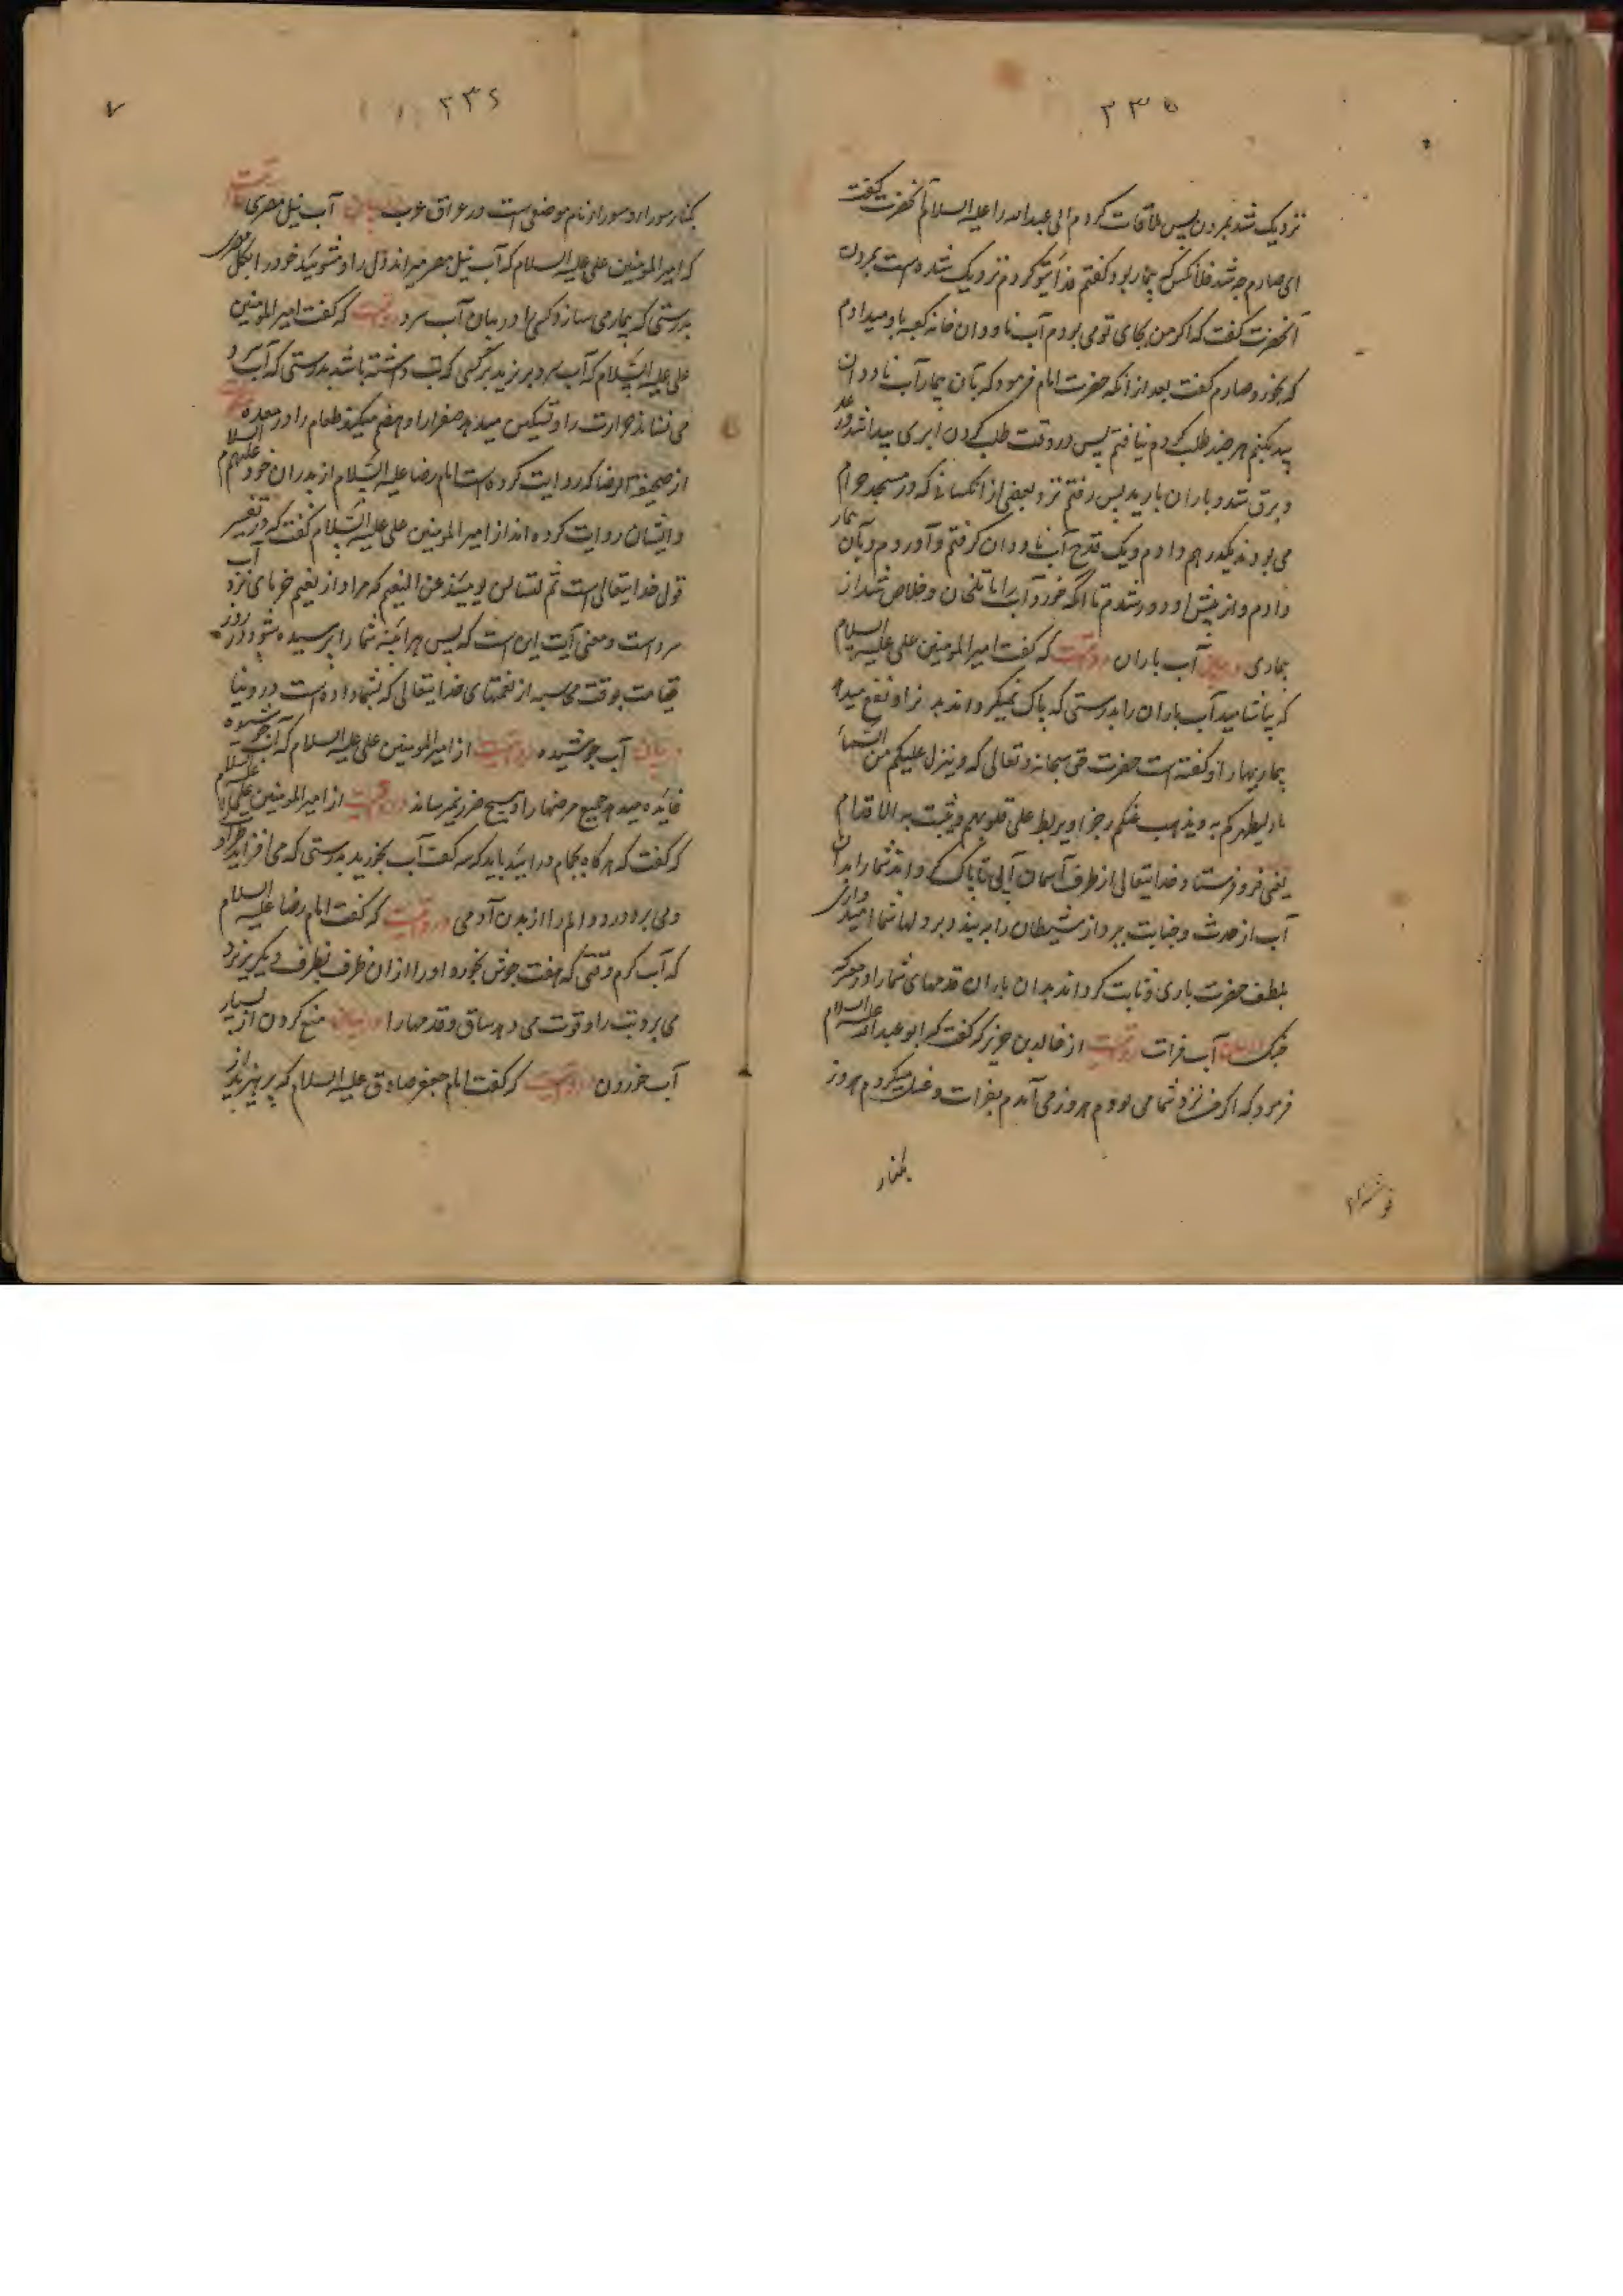 ۲۳۵
نزدیک شد بمردن پس ملاقات کردم ابی عبدالله را علیه السلام آنحضرت گفت
ای صارم چه شد فلانکس که بیمار بود گفتم فدایتو کردم نزدیک شده است بمردن
آنحضرت گفت که اگر من بجای تو می بودم آب ناودان خانه کعبه باو میدادم
که بخورد صارم گفت بعد از انکه حضرت امام فرمود که بآن بیمار آب ناودان
بدهیم هر چند طلب کردم نیافتم پس در وقت طلب کردن ابری پیدا شد و رعد
و برق شد و باران بارید پس رفتم نزد بعضی از انکسانی که در مسجد حرام
می بودند یکدرهم دادم و یک قدح آب ناودان گرفتم و آوردم و بآن بیمار
دادم و از پیش او دور نشدم تا آنکه خورد آب را با تلخان و خلاص شد از
بیماری در بیان آب باران روایتست که گفت امیر المومنین علی علیه السلام
که بیاشامید آب باران را بدرستی که پاک میگرداند بدن را و نفع میدهد
بیماریها را و گفته است حضرت حق سبحانه و تعالی که و ینزل علیکم من السماء
ماء لیطهرکم به و یذهب عنکم رجزا و یربط علی قلوبهم و یثبت به الاقدام
یعنی فرو فرستاد خدایتعالی از طرف آسمان آبی تا پاک گرداند شما را بدان
آب از حدث و جنابت و ببرد از شیطان را و بر دلها شما امیدواری
بلطف حضرت باری و ثابت گرداند بدان باران قدمهای شما را در معرکه
جنگ در بیان آب فرات روایتست از خالد بن جریر که گفت که ابو عبدالله علیه السلام
فرمود که اگر من نزد شما می بودم هر روز می آمدم بفرات و غسل میکردم هر روز
بکنار
۲۳۶
۷
بکنار سورا و سورا نام موضعی است در عراق عرب در بیان آب نیل مصری روایتست
که امیر المومنین علی علیه السلام که آب نیل مصر میراند دل را و مشوئید خود را بگل مصر
بدرستی که بیمار می سازد کسی را در بیان آب سرد روایتست که گفت امیر المومنین
علی علیه السلام که آب سرد بریزید بر کسی که تب داشته باشد بدرستی که آب سرد
می نشاند حرارت را و تسکین میدهد صفرا را و هضم میکند طعام را در معده روایتست
از صحیفة الرضا که روایت کرده است امام رضا علیه السلام از پدران خود علیهم السلام
و ایشان روایت کرده اند از امیر المومنین علی علیه السلام گفت که در تفسیر
قول خدایتعالی است ثم لتسالن یومئذ عن النعیم که مراد از نعیم خرمای تر و آب
سرد است و معنی آیت این است که پس هر آینه شما را پرسیده شود در روز
قیامت بوقت محاسبه از نعمتهای خدایتعالی که بشما داده است در دنیا
در بیان آب جوشیده روایتست از امیر المومنین علی علیه السلام که آب جوشیده
فایده میدهد جمیع مرضها را و هیچ ضرر نمیرساند روایتست از امیر المومنین علی علیه السلام
که گفت که هرگاه بحمام در آئید باید که سه کف آب بخورید بدرستی که می افزاید طراوت
و می برد درد و الم را از بدن آدمی روایتست که گفت امام رضا علیه السلام
که آب گرم وقتی که هفت جوش بخورد و او را از ان ظرف بظرف دیگر بریزند
می برد تب را و قوت می دهد ساق و قدمها را در بیان منع کردن از بسیار
آب خوردن روایتست که گفت امام جعفر صادق علیه السلام که بپرهیزید از